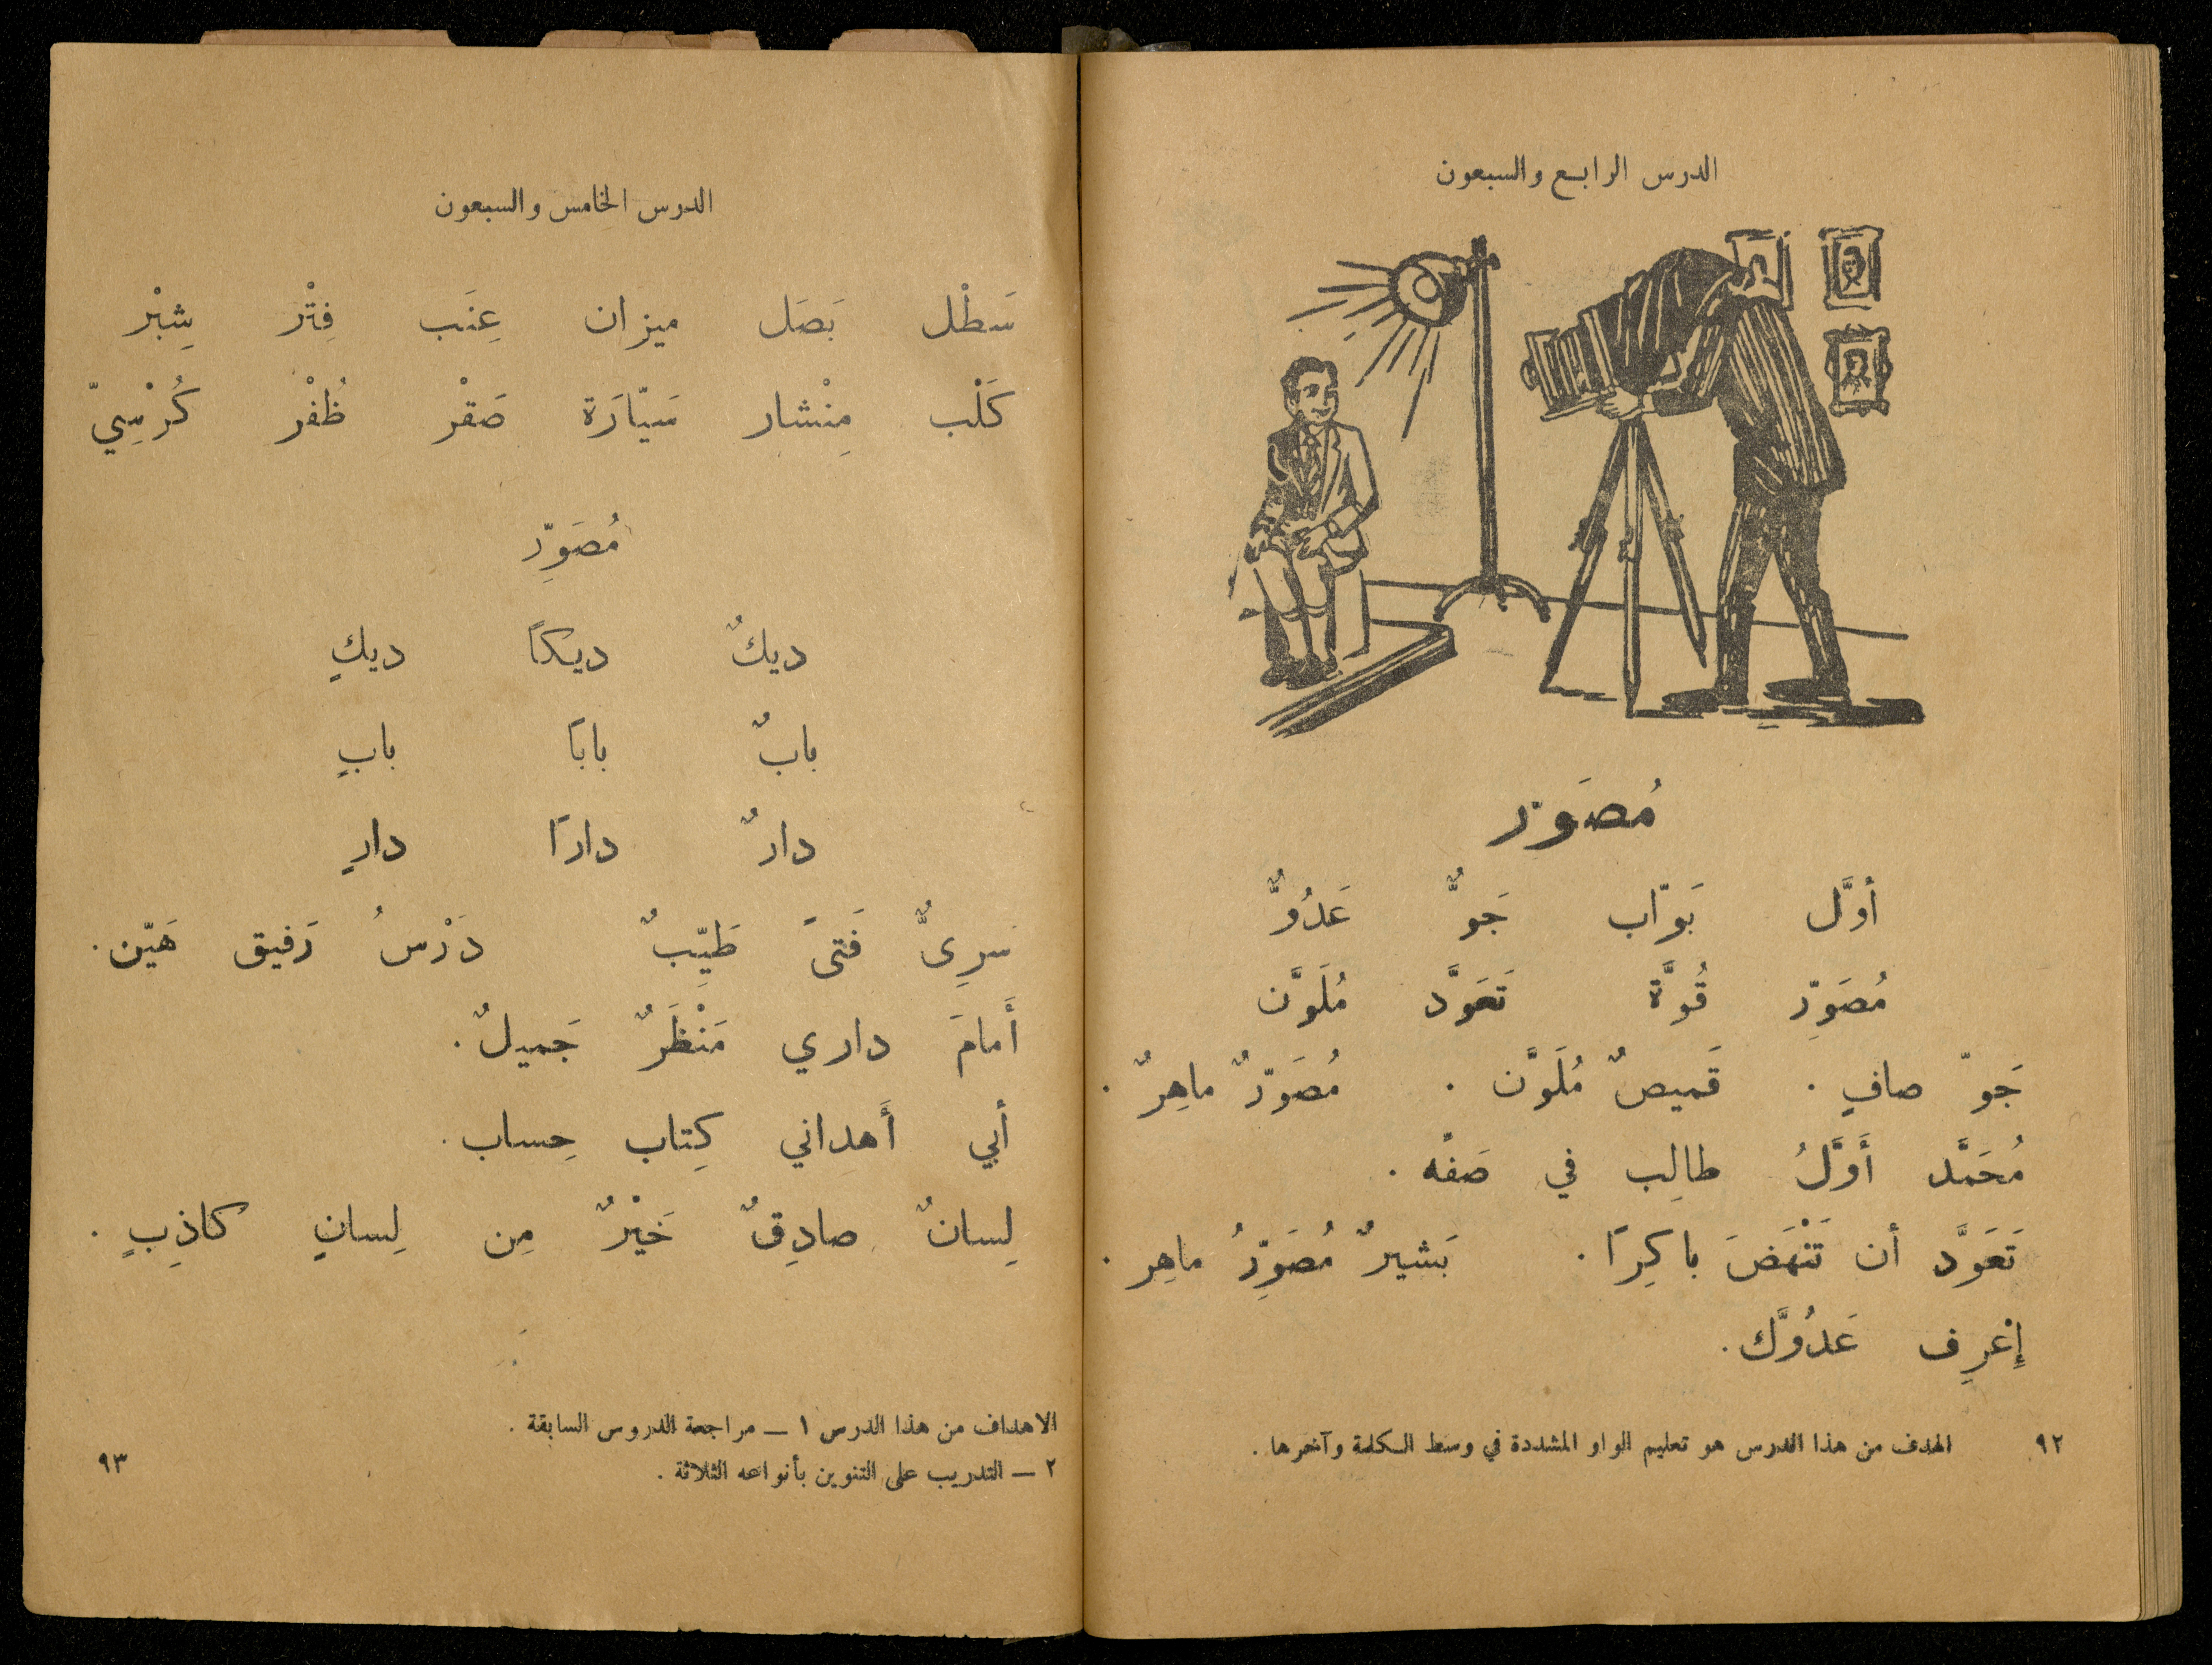 الدرس الرابع والسبعون
مُصَوّر
أوَّل بَوّاب جَوٌّ عَدُوٌّ
مُصَوِّر قُوَّة تَعَوَّد مُلَوَّن
جَوّ صافٍ . قَميصٌ مُلَوَّن . مُصَوّرٌ ماهِرٌ .
مُحَمَّد أَوَّلُ طالِب في صَفّه .
تَعَوَّد أن تَنْهَضَ باكِرًا . بَشيرٌ مُصَوِّرُ ماهِر .
إِعْرِف عَدُوَّك .
٩٢ الهدف من هذا الدرس هو تعليم الواو المشددة في وسط الكلمة وآخرها .
الدرس الخامس والسبعون
سَطْل بَصَل ميزان عِنَب فِتْر شِبْر
كَلْب مِنْشار سَيّارَة صَقْر ظُفْر كُرْسِيّ
مُصَوِّر
ديكٌ ديكًا ديكٍ
بابٌ بابًا بابٍ
دارٌ دارًا دارٍ
سَرِىٌّ فَتىً طَيِّبٌ دَرْسُ رَفيق هَيّن .
أَمامَ داري مَنْظَرٌ جَميلٌ .
أبي أَهداني كِتاب حِساب .
لِسانٌ صادِقٌ خَيْرٌ مِن لِسانٍ كاذِبٍ .
الاهداف من هذا الدرس ١ — مراجعة الدروس السابقة .
٢ — التدريب على التنوين بأنواعه الثلاثة .
٩٣